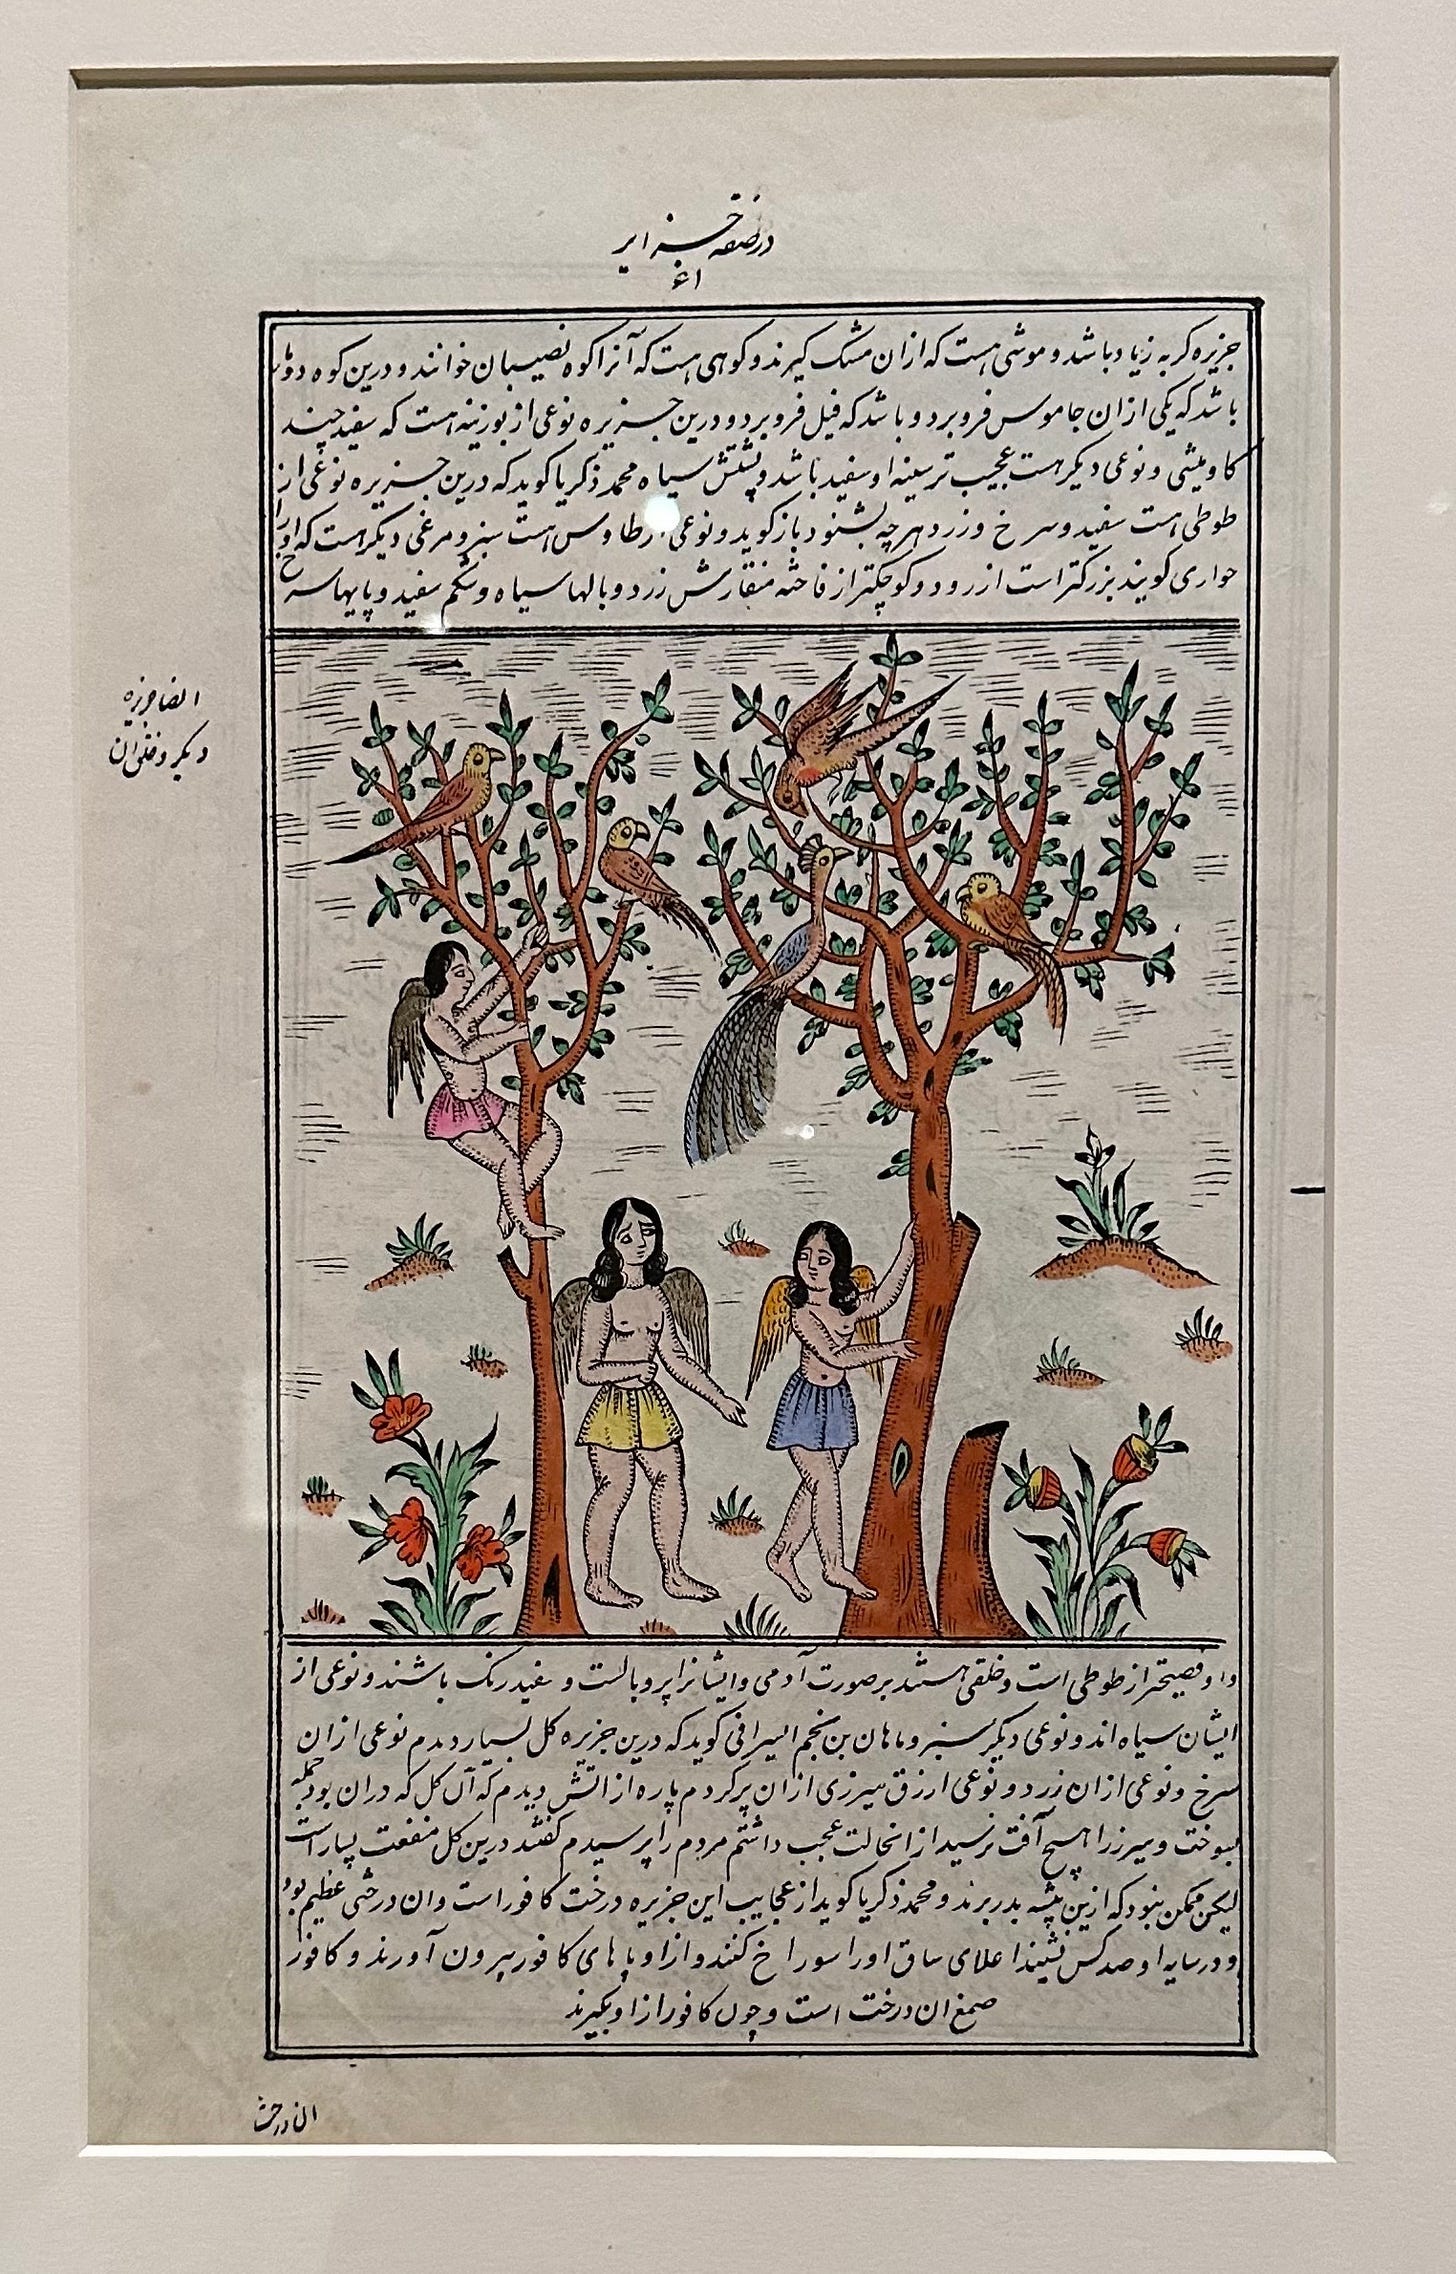 در صفه جزایر
۴۱
جزیره کربه زیاد باشد و موشی هست که ازان مشک کیرند و کوهی هست که آنرا کوه نصیبان خوانند و درین کوه
باشد که یکی ازان جاموس فرو برد و باشد که فیل فرو برد و درین جزیره نوعی از بوزینه هست که سفید چند
کاومیشی و نوعی دیکر هست عجیب تر سینه او سفید باشد و پشتش سیاه محمد ذکریا کوید که درین جزیره نوعی از
طوطی هست سفید و سرخ و زرد هرچه بشنود باز کوید و نوعی از طاوس هست سبز و مرغی دیکر هست که اورا
حواری کویند بزرکتر است از رود و کوچکتر از فاخته منقارش زرد و بالها سیاه و شکم سفید و پایها سرخ
ایضا جزیره
دیکر و خلق ان
و او فصیحتر از طوطی است و خلقی هستند بر صورت آدمی و ایشانرا پر و بالست و سفید رنک باشند و نوعی از
ایشان سیاه اند و نوعی دیکر سبز و ماهان بن نجم السیرافی کوید که درین جزیره کل بسیار دیدم نوعی ازان
سرخ و نوعی ازان زرد و نوعی ارزق میرزی ازان پر کردم پاره از اتش دیدم که آن کل که دران بود جمله
بسوخت و میرزرا هیچ آفت نرسید از انحالت عجب داشتم مردم را پرسیدم کفتند درین کل منفعت بسیار است
لیکن ممکن نبود که ازین پیشه بدر برند و محمد ذکریا کوید از عجایب این جزیره درخت کافور است و ان درختی عظیم بود
و در سایه او صد کس نشیند اعلای ساق اورا سوراخ کنند و ازا و پاهای کافور بیرون آورند و کافور
صمغ ان درخت است و چون کافور ازا و بکیرند
ان درخت